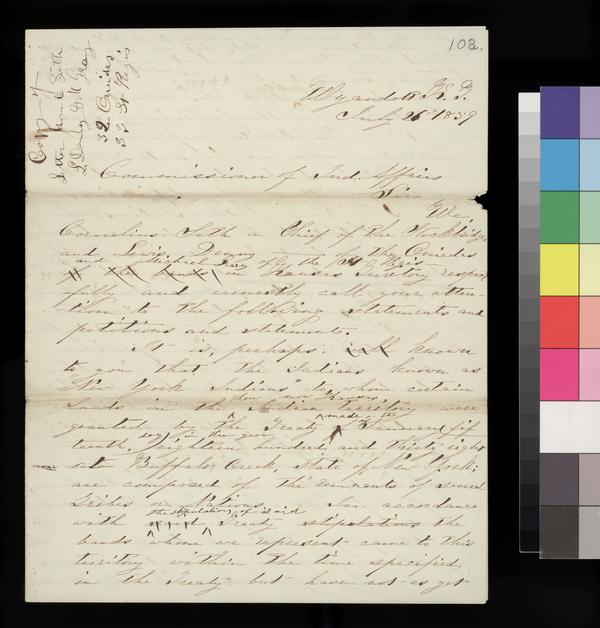 102.
Copy of
Letter from C Seth
L Denny & M Gray
32 Oneidas
33 St Regis
Wyandott K. T.
July 26th 1859
Commissioner of Ind. Affairs
Sir
We,
Cornelius Seth a Chief of the Stockbridges
and Lewis Denny of the Oneidas
and Michael Gray of the St Regis
in Kansas Territory respect
fully and earnestly call your atten-
tion to the following statements and
petitions and statements.
It is, perhaps, well known
to you that the Indians known as
"New York Indians" to whom certain
then now Kansas
Lands in the Indian territory were
made on the
granted by the Treaty January fif
teenth, in the year eighteen hundred and thirty eight
at Buffalo Creek, State of New York;
are composed of the remnants of several
Tribes or Nations. In accordance
the stipulations of said
with Treaty stipulations the
bands whom we represent came to this
territory within the time specified
in the Treaty but have not as yet